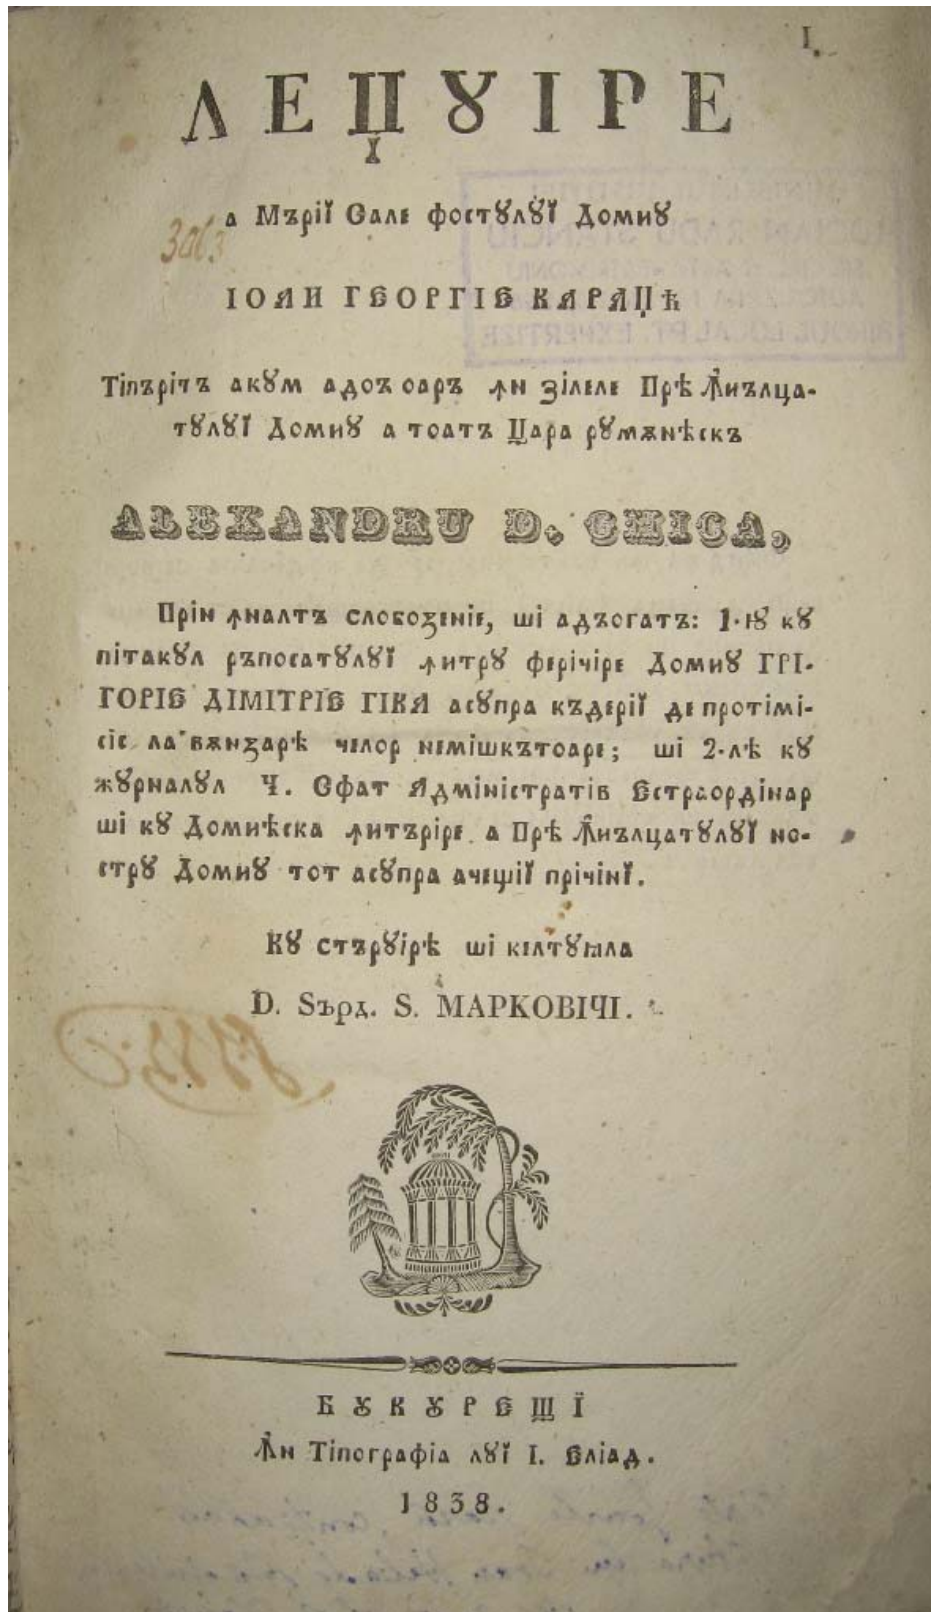 I.
ЛЕЏꙊІРЕ
а Мърїї Сале фостꙋлꙋї Домнꙋ
ІОАН ГЕОРГІЕ КАРАЏѢ
Тіпърітъ акꙋм адоꙋ оаръ ꙟн зілеле Прѣ ꙟнълца-
тꙋлꙋї Домнꙋ а тоатъ Цара рꙋмѫнѣскъ
ALEXANDRU D. GHICA,
Прін ꙟналтъ слобозеніе, ші адъогатъ: 1-ю кꙋ
пітакꙋл ръпосатꙋлꙋї ꙟнтрꙋ ферічіре Домнꙋ ГРІ-
ГОРІЕ ДІМІТРІЕ ГІКА асꙋпра къдерїї де протімі-
сіе ла вѫнзарѣ челор немішкътоаре; ші 2-лѣ кꙋ
жꙋрналꙋл Ч. Сфат Адміністратів Естраордінар
ші кꙋ Домнѣска ꙟнтъріре а Прѣ ꙟнълцатꙋлꙋї но-
стрꙋ Домнꙋ тот асꙋпра ачещії прічінї.
Кꙋ стърꙋірѣ ші келтꙋꙗла
D. Sърд. S. МАРКОВІЧІ.
БꙊКꙊРЕЩЇ
Ꙟн Тіпографіа лꙋї І. Еліад.
1838.